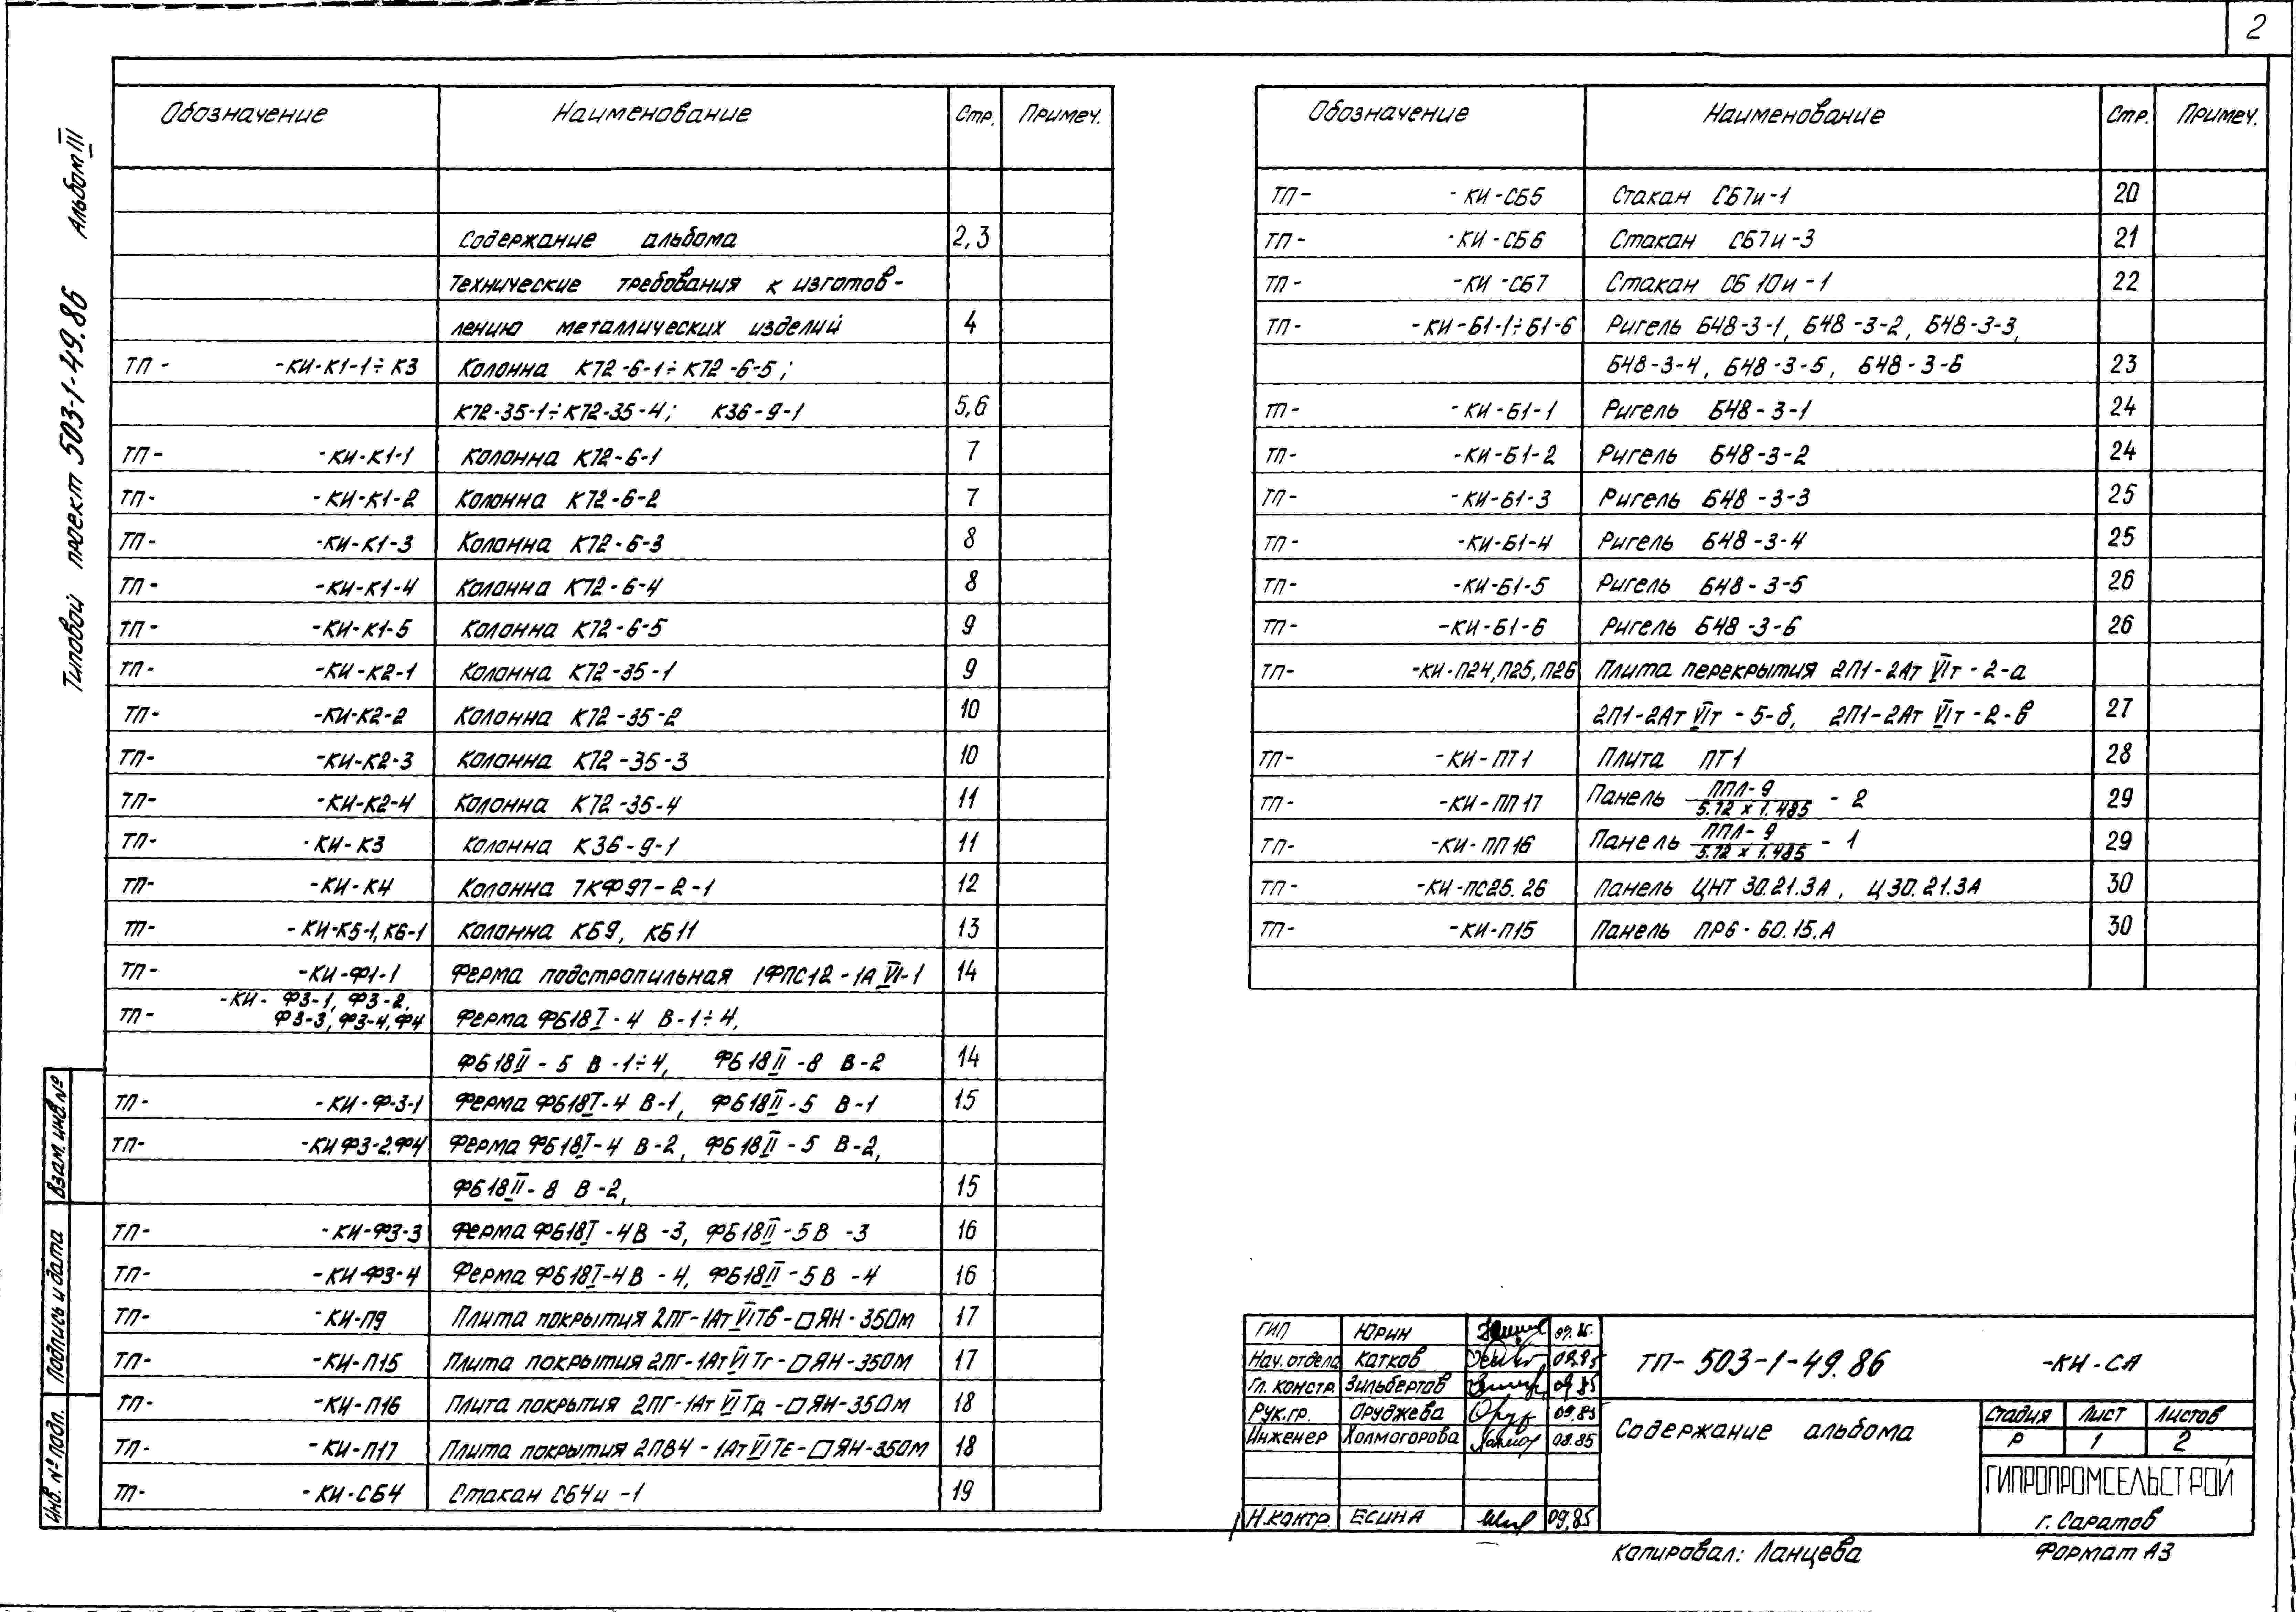 2
Типовой проект 503-1-49.86 Альбом III
Обозначение Наименование Стр. Примеч.
Содержание альбома 2,3
Технические требования к изготов-
лению металлических изделий 4
ТП- -КИ-К1-1÷К3 Колонна К72-6-1÷К72-6-5;
К72-35-1÷К72-35-4; К36-9-1 5,6
ТП- -КИ-К1-1 Колонна К72-6-1 7
ТП- -КИ-К1-2 Колонна К72-6-2 7
ТП- -КИ-К1-3 Колонна К72-6-3 8
ТП- -КИ-К1-4 Колонна К72-6-4 8
ТП- -КИ-К1-5 Колонна К72-6-5 9
ТП- -КИ-К2-1 Колонна К72-35-1 9
ТП- -КИ-К2-2 Колонна К72-35-2 10
ТП- -КИ-К2-3 Колонна К72-35-3 10
ТП- -КИ-К2-4 Колонна К72-35-4 11
ТП- -КИ-К3 Колонна К36-9-1 11
ТП- -КИ-К4 Колонна 7КФ97-2-1 12
ТП- -КИ-К5-1,К6-1 Колонна КБ9, КБ11 13
ТП- -КИ-Ф1-1 Ферма подстропильная 1ФПС12-1АVI-1 14
ТП- -КИ- Ф3-1, Ф3-2,
Ф3-3, Ф3-4, Ф4 Ферма ФБ18I-4 В-1÷4,
ФБ18II-5 В-1÷4, ФБ18II-8 В-2 14
ТП- -КИ-Ф-3-1 Ферма ФБ18I-4 В-1, ФБ18II-5 В-1 15
ТП- -КИ Ф3-2.Ф4 Ферма ФБ18I-4 В-2, ФБ18II-5 В-2,
ФБ18II-8 В-2, 15
ТП- -КИ-Ф3-3 Ферма ФБ18I-4В-3, ФБ18II-5В-3 16
ТП- -КИ-Ф3-4 Ферма ФБ18I-4В-4, ФБ18II-5В-4 16
ТП- -КИ-П9 Плита покрытия 2ПГ-1АтVIТв-□ЯН-350м 17
ТП- -КИ-П15 Плита покрытия 2ПГ-1АтVIТг-□ЯН-350м 17
ТП- -КИ-П16 Плита покрытия 2ПГ-1АтVIТд-□ЯН-350м 18
ТП- -КИ-П17 Плита покрытия 2ПВ4-1АтVIТЕ-□ЯН-350м 18
ТП- -КИ-СБ4 Стакан СБ4и-1 19
Обозначение Наименование Стр. Примеч.
ТП- -КИ-СБ5 Стакан СБ7и-1 20
ТП- -КИ-СБ6 Стакан СБ7и-3 21
ТП- -КИ-СБ7 Стакан СБ10и-1 22
ТП- -КИ-Б1-1÷Б1-6 Ригель Б48-3-1, Б48-3-2, Б48-3-3,
Б48-3-4, Б48-3-5, Б48-3-6 23
ТП- -КИ-Б1-1 Ригель Б48-3-1 24
ТП- -КИ-Б1-2 Ригель Б48-3-2 24
ТП- -КИ-Б1-3 Ригель Б48-3-3 25
ТП- -КИ-Б1-4 Ригель Б48-3-4 25
ТП- -КИ-Б1-5 Ригель Б48-3-5 26
ТП- -КИ-Б1-6 Ригель Б48-3-6 26
ТП- -КИ-П24,П25,П26 Плита перекрытия 2П1-2АтVIт-2-а
2П1-2АтVIт-5-б, 2П1-2АтVIт-2-в 27
ТП- -КИ-ПТ1 Плита ПТ1 28
ТП- -КИ-ПП17 Панель ППЛ-9/5.72х1.485 - 2 29
ТП- -КИ-ПП16 Панель ППЛ-9/5.72х1.485 - 1 29
ТП- -КИ-ПС25.26 Панель ЦНТ 30.21.3А, Ц30.21.3А 30
ТП- -КИ-П15 Панель ПР6-60.15.А 30
Взам. инв.№
Подпись и дата
Инв.№подл.
ГИП Юрин 09.85.
Нач.отдела Катков 09.85
Гл. констр. Зильбертов 09.85
Рук.гр. Оруджева 09.85
Инженер Холмогорова 08.85
Н.контр. Есина 09,85
ТП-503-1-49.86 -КИ-СА
Содержание альбома
Стадия Лист Листов
Р 1 2
ГИПРОПРОМСЕЛЬСТРОЙ
г. Саратов
Копировал: Ланцева Формат А3